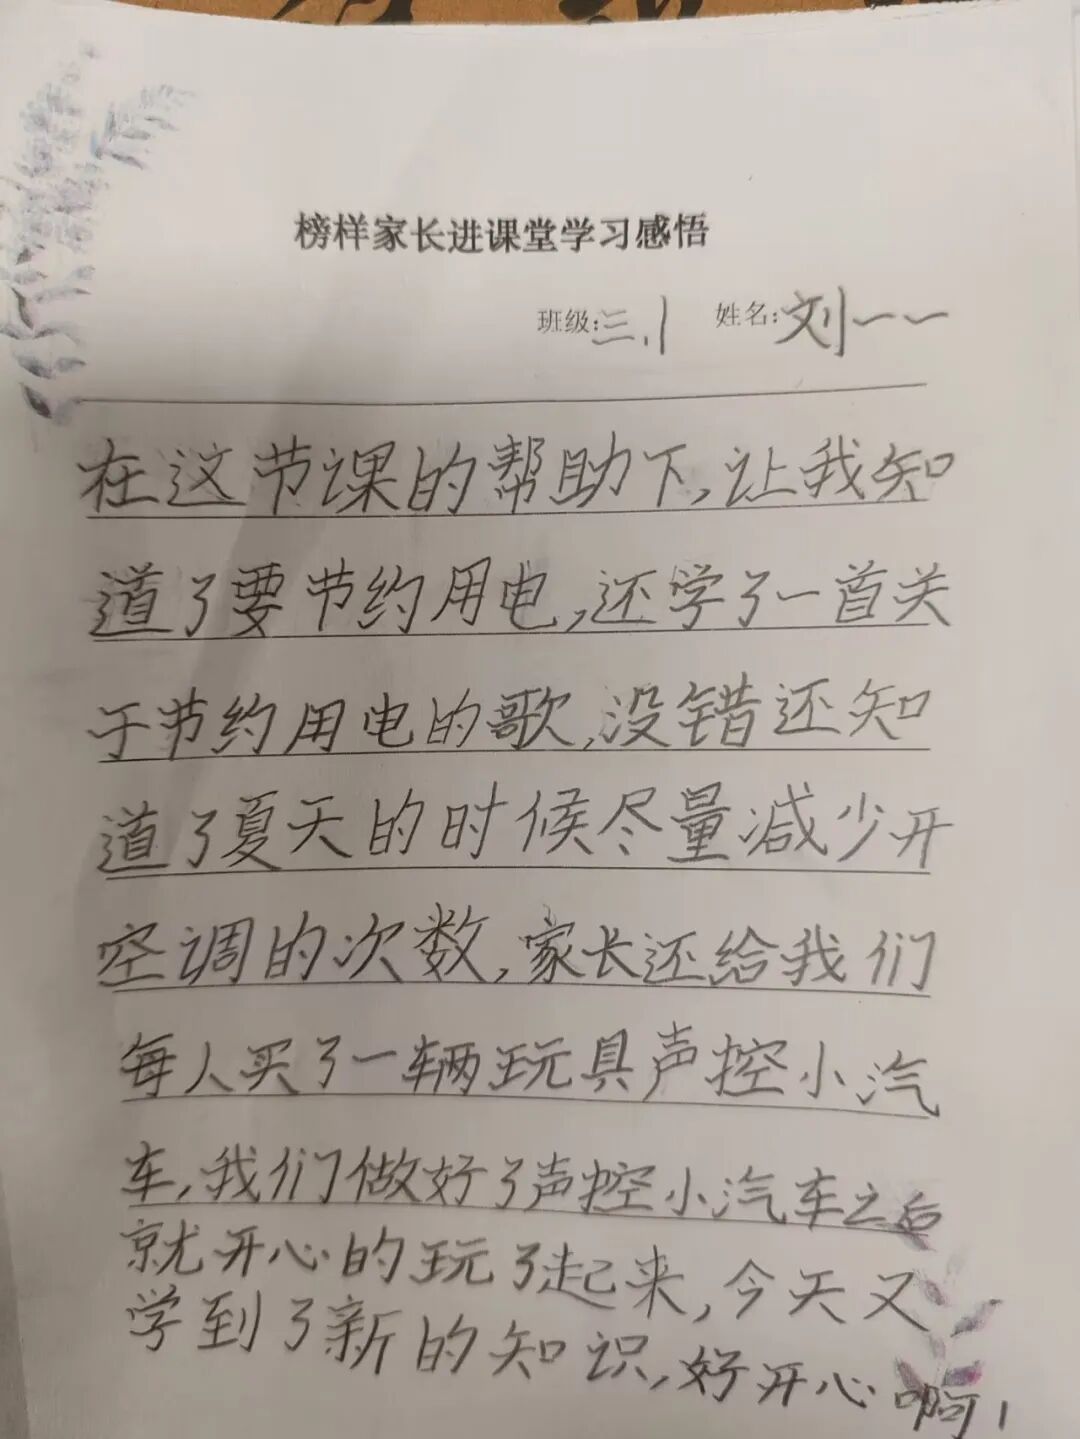 榜样家长进课堂学习感悟
班级:三.1 姓名:刘一一
在这节课的帮助下,让我知
道了要节约用电,还学了一首关
于节约用电的歌,没错还知
道了夏天的时候尽量减少开
空调的次数,家长还给我们
每人买了一辆玩具声控小汽
车,我们做好了声控小汽车之后
就开心的玩了起来,今天又
学到了新的知识,好开心啊!